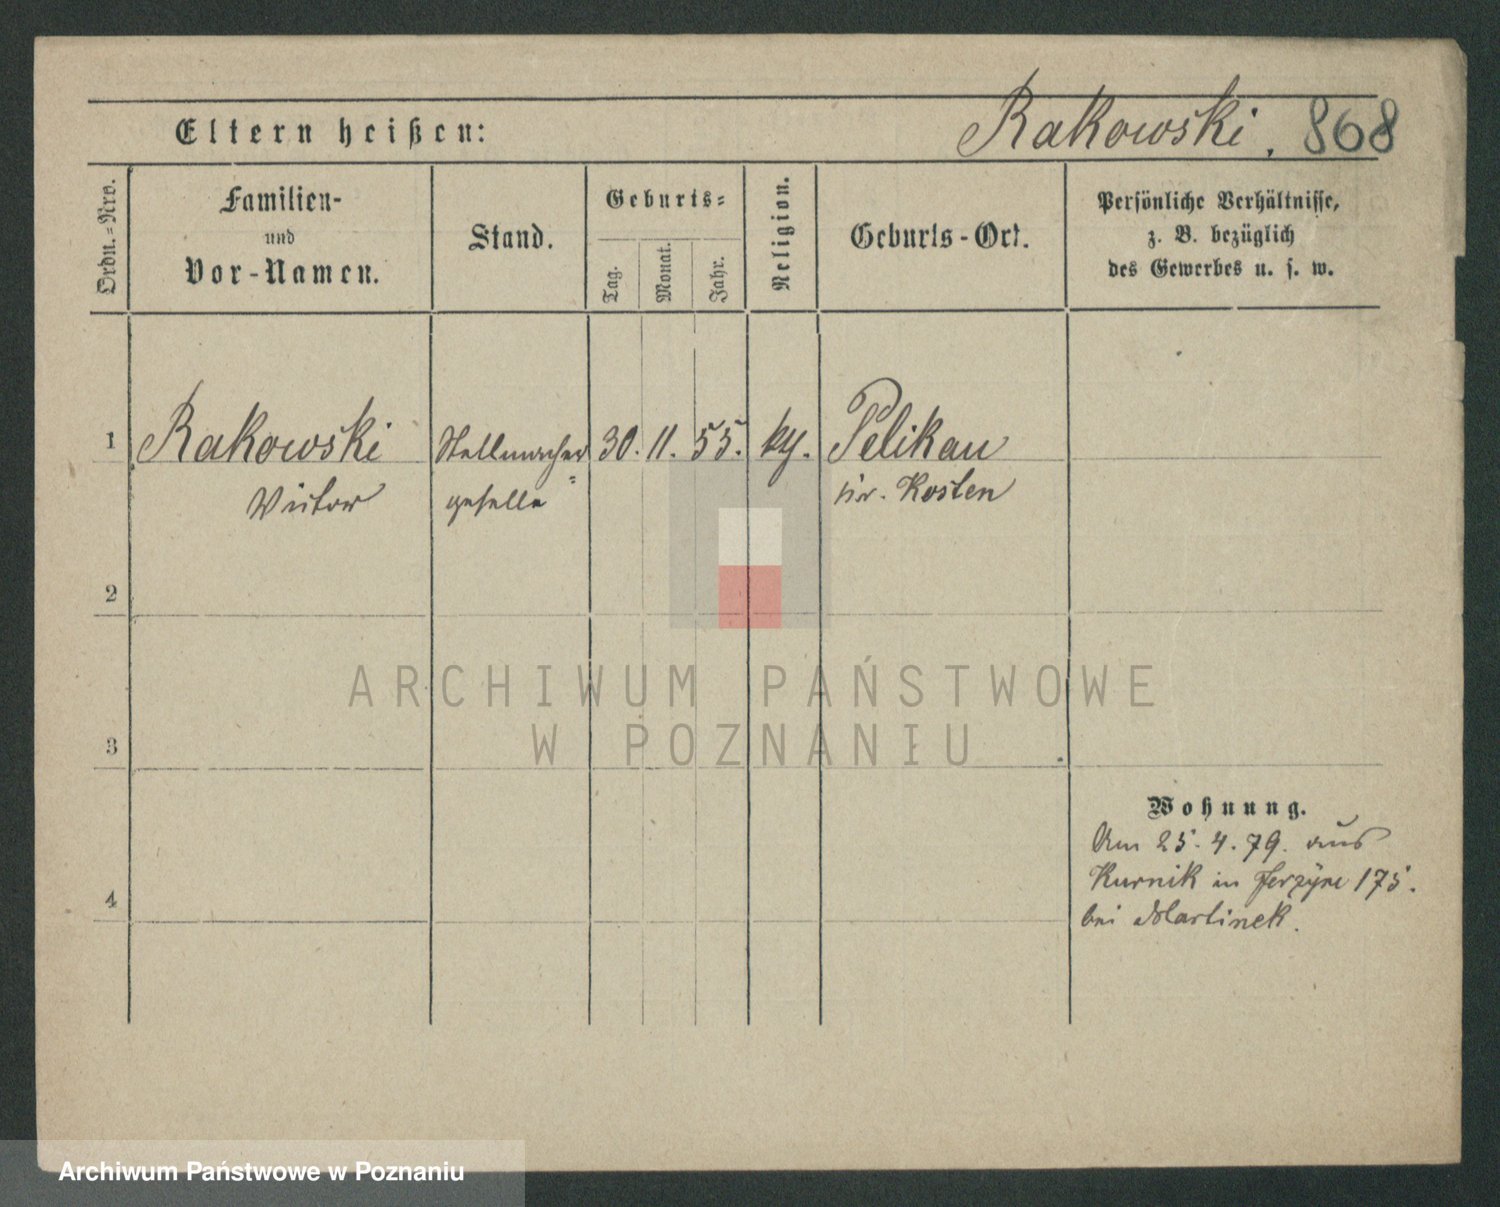 Rakowski. 868
Eltern heißen:
Ordn.=Nro.
Familien-
und
Vor-Namen.
Stand.
Geburts=
Tag.
Monat.
Jahr.
Religion.
Geburts-Ort.
Persönliche Verhältnisse,
z. B. bezüglich
des Gewerbes u. s. w.
1 Rakowski Stellmacher= 30. 11. 55. kg. Pelikan
Victor geselle Kr. Kosten
2
3
ARCHIWUM PAŃSTWOWE
W POZNANIU
Wohnung.
Am 25. 4. 79. aus
Kurnik in Jerzyce 175.
bei Martinek.
4
Archiwum Państwowe w Poznaniu